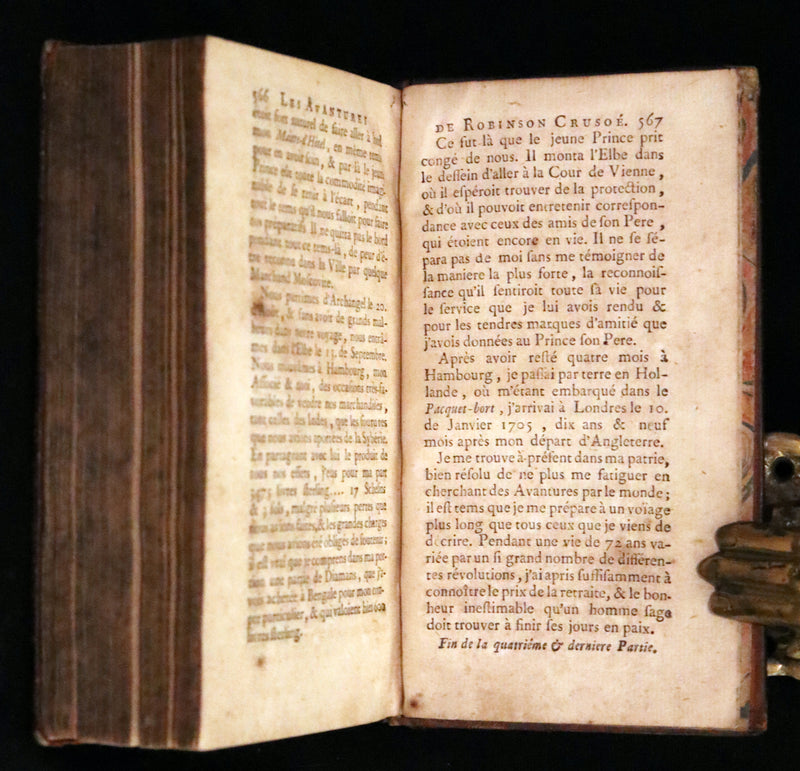 566 LES AVANTURES
étant fort naturel de faire aller à bord
mon Maitre-d'Hôtel, en même tems
pour en avoir soin, & par là le jeune
Prince eut toute la commodité imagi-
nable de se tenir à l'écart, pendant
tout le tems qu'il nous falloit pour faire
nos préparatifs. Il ne quitta pas le bord
pendant tout ce tems-là, de peur d'ê-
tre reconnu dans la Ville par quelque
Marchand Moscovite.
Nous partimes d'Archangel le 20.
d'Août, & sans avoir de grands mal-
heurs dans notre voyage, nous entrâ-
mes dans l'Elbe le 13. de Septembre.
Nous trouvâmes à Hambourg, mon
Associé & moi, des occasions très-fa-
vorables de vendre nos marchandises,
tant celles des Indes, que les fourures
que nous avions aportées de la Sybérie.
En partageant avec lui le produit de
tous nos effets, j'eus pour ma part
3475 livres sterling.... 17 Schelins
& 3 sols, malgré plusieurs pertes que
nous avions faites, & les grandes charges
que nous avions été obligés de soutenir;
il est vrai que je comprens dans ma por-
tion une partie de Diamans, que j'a-
vois achetée à Bengale pour mon com-
pte particulier, & qui valoient bien 600
livres sterling.
DE ROBINSON CRUSOÉ. 567
Ce fut là que le jeune Prince prit
congé de nous. Il monta l'Elbe dans
le dessein d'aller à la Cour de Vienne,
où il espéroit trouver de la protection,
& d'où il pouvoit entretenir correspon-
dance avec ceux des amis de son Pere,
qui étoient encore en vie. Il ne se sé-
para pas de moi sans me témoigner de
la maniere la plus forte, la reconnois-
sance qu'il sentiroit toute sa vie pour
le service que je lui avois rendu &
pour les tendres marques d'amitié que
j'avois données au Prince son Pere.
Après avoir resté quatre mois à
Hambourg, je passai par terre en Hol-
lande, où m'étant embarqué dans le
Pacquet-bort, j'arrivai à Londres le 10.
de Janvier 1705, dix ans & neuf
mois après mon départ d'Angleterre.
Je me trouve à-présent dans ma patrie,
bien résolu de ne plus me fatiguer en
cherchant des Avantures par le monde;
il est tems que je me prépare à un voïage
plus long que tous ceux que je viens de
décrire. Pendant une vie de 72 ans va-
riée par un si grand nombre de différen-
tes révolutions, j'ai apris suffisamment à
connoître le prix de la retraite, & le bon-
heur inestimable qu'un homme sage
doit trouver à finir ses jours en paix.
Fin de la quatriéme & derniere Partie.